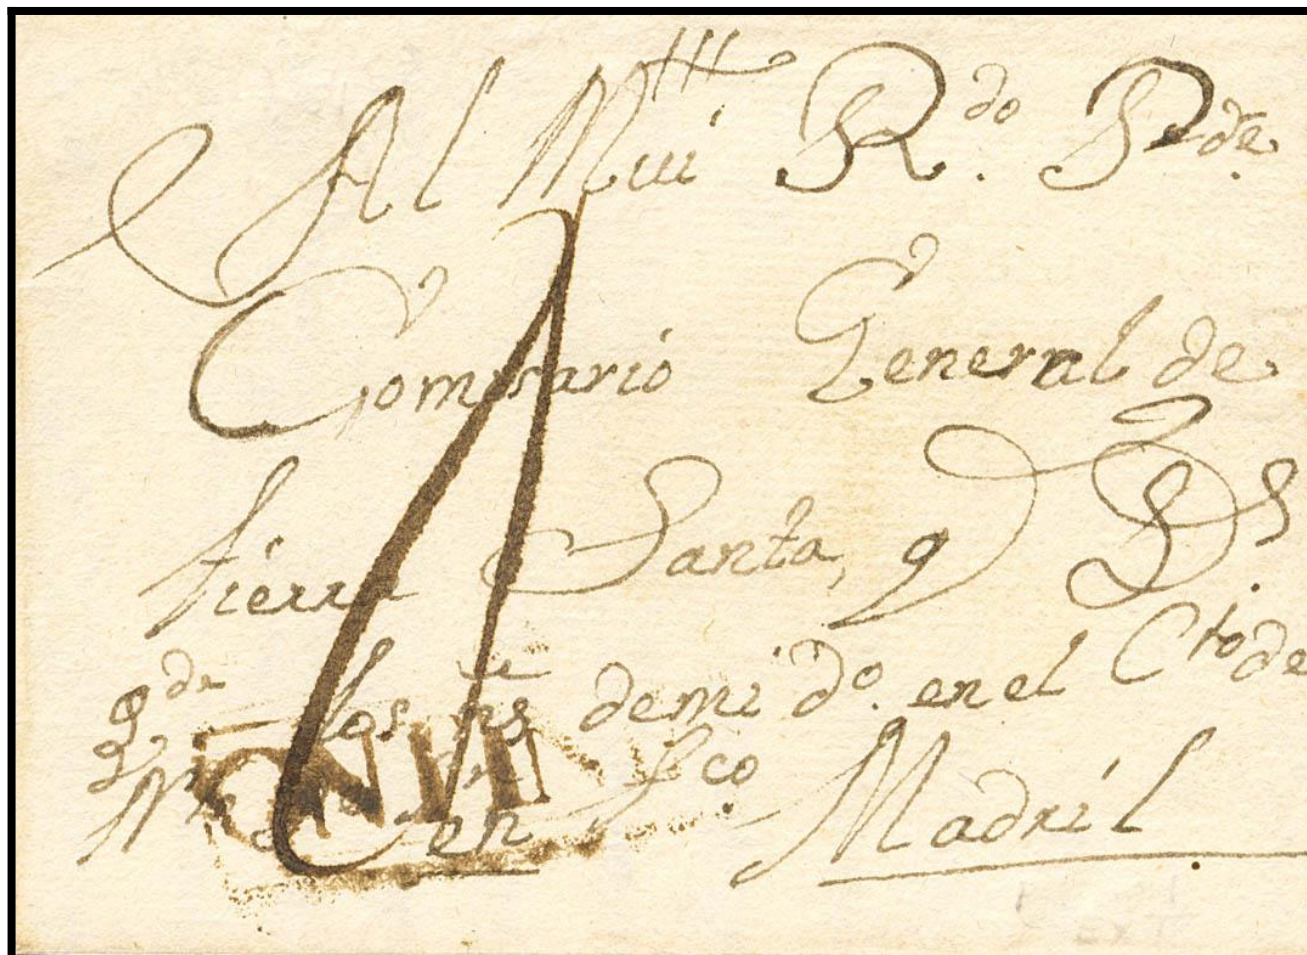 Al Mui R.do P.dre
Comisario General de
tierra Santa, q Ds
g.de los as de mi do. en el Cto de
N. P. Sn Fco
en Madril